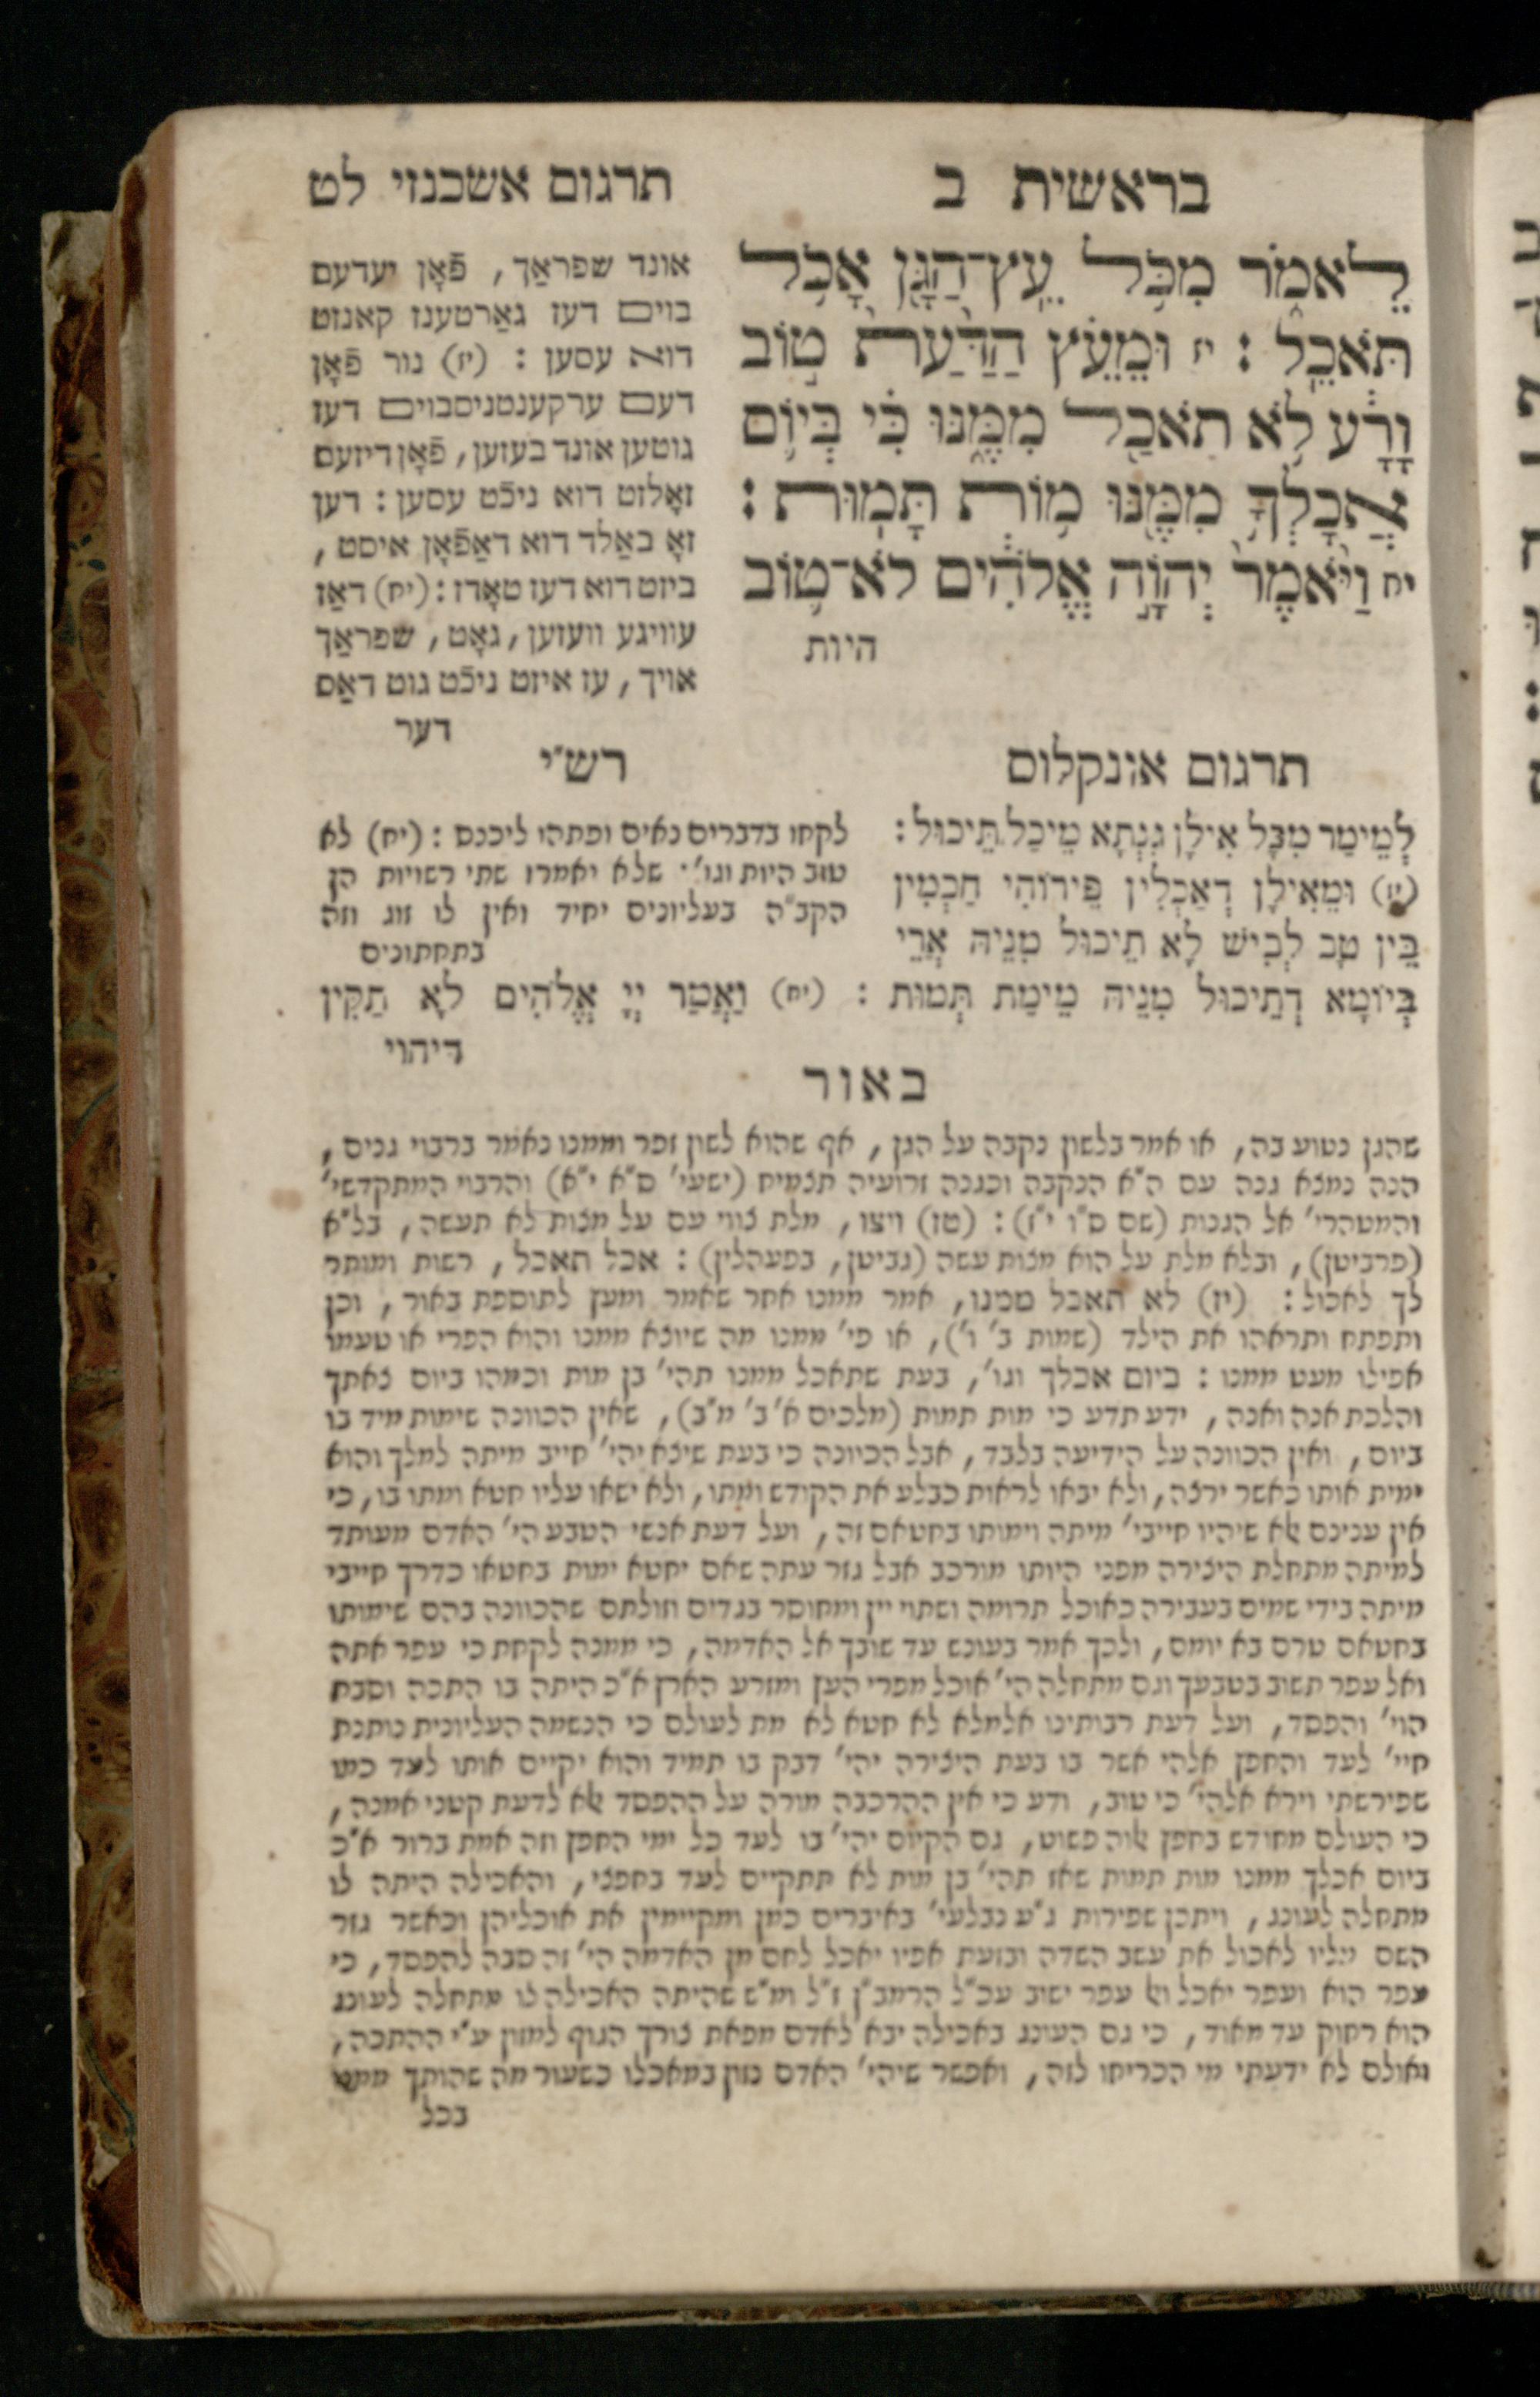 בראשית ב
תרגום אשכנזי לט
לֵאמֹר מִכֹּל עֵץ־הַגָּן אָכֹל
תֹּאכֵל : יז וּמֵעֵץ הַדַּעַת טוֹב
וָרָע לֹא תֹאכַל מִמֶּנּוּ כִּי בְּיוֹם
אֲכָלְךָ מִמֶּנּוּ מוֹת תָּמוּת :
יח וַיֹּאמֶר יְהוָֹה אֱלֹהִים לֹא־טוֹב
היות
אונד שפראַך , פֿאָן יעדעם
בוים דעז גאַרטענז קאנזט
דוא עסען : (יז) נור פֿאָן
דעם ערקענטניסבוים דעז
גוטען אונד בעזען , פֿאָן דיזעם
זאָלזט דוא ניכֿט עסען : דען
זאָ באַלד דוא דאַפֿאָן איסט ,
ביזט דוא דעז טאָדז : (יח) דאַז
עוויגע וועזען , גאָט , שפראַך
אויך , עז איזט ניכֿט גוט דאַס
דער
תרגום אונקלוס
לְמֵימַר מִכָּל אִילָן גִּנְתָא מֵיכַל תֵּיכוּל :
(יז) וּמֵאִילָן דְאַכְלִין פֵּירוֹהִי חַכְמִין
בֵּין טָב לְבִישׁ לָא תֵיכוּל מִנֵּיהּ אֲרֵי
בְּיוֹמָא דְתֵיכוּל מִנֵּיהּ מֵימַת תְּמוּת : (יח) וַאֲמַר יְיָ אֱלֹהִים לָא תַקִּין
דיהוי
רש״י
לקחו בדברים נאים ופתהו ליכנס : (יח) לא
טוב היות וגו׳ שלא יאמרו שתי רשויות הן
הקב״ה בעליונים יחיד ואין לו זוג וזה
בתחתונים
באור
שהגן נטוע בה , או אמר בלשון נקבה על הגן , אף שהוא לשון זכר וממנו נאמר ברבוי גנים ,
הנה נמצא גנה עם ה״א הנקבה וכגנה זרועיה תצמיח (ישעי׳ ס״א י״א) והרבוי המתקדשי׳
והמטהרי׳ אל הגנות (שם ס״ו י״ז) : (טז) ויצו , מלת צווי עם על מצות לא תעשה , בל״א
(פרביטן) , ובלא מלת על הוא מצות עשה (גביטן , בפעהלין) : אכל תאכל , רשות ומותר
לך לאכול : (יז) לא תאכל ממנו , אמר ממנו אחר שאמר ומעץ לתוספת באור , וכן
ותפתח ותראהו את הילד (שמות ב׳ ו׳) , או פי׳ ממנו מה שיוצא ממנו והוא הפרי או טעמו
אפילו מעט ממנו : ביום אכלך וגו׳ , בעת שתאכל ממנו תהי׳ בן מות וכמהו ביום צאתך
והלכת אנה ואנה , ידע תדע כי מות תמות (מלכים א׳ ב׳ מ״ב) , שאין הכוונה שימות מיד בו
ביום , ואין הכוונה על הידיעה בלבד , אבל הכיונה כי בעת שיצא יהי׳ חייב מיתה למלך והוא
ימית אותו כאשר ירצה , ולא יבאו לראות כבלע את הקודש ומתו , ולא ישאו עליו חטא ומתו בו , כי
אין ענינם אלא שיהיו חייבי׳ מיתה וימותו בחטאם זה , ועל דעת אנשי הטבע הי׳ האדם מעותד
למיתה מתחלת היצירה מפני היותו מורכב אבל גזר עתה שאם יחטא ימות בחטאו כדרך חייבי
מיתה בידי שמים בעבירה כאוכל תרומה ושתוי יין ומחוסר בגדים וזולתם שהכוונה בהם שימותו
בחטאם טרם בא יומם , ולכך אמר בעונש עד שובך אל האדמה , כי ממנה לקחת כי עפר אתה
ואל עפר תשוב בטבעך וגם מתחלה הי׳ אוכל מפרי העץ ומזרע הארץ א״כ היתה בו התכה וסבת
הוי׳ והפסד , ועל דעת רבותינו אלמלא לא חטא לא מת לעולם כי הנשמה העליונית נותנת
חיי׳ לעד והחפץ אלהי אשר בו בעת היצירה יהי׳ דבק בו תמיד והוא יקיים אותו לעד כמו
שפירשתי וירא אלהי׳ כי טוב , ודע כי אין ההרכבה מורה על ההפסד אלא לדעת קטני אמנה ,
כי העולם מחודש בחפץ אלוה פשוט , גם הקיום יהי׳ בו לעד כל ימי החפץ וזה אמת ברור א״כ
ביום אכלך ממנו מות תמות שאז תהי׳ בן מות לא תתקיים לעד בחפצי , והאכילה היתה לו
מתחלה לעונג , ויתכן שפירות ג״ע נבלעי׳ באיברים כמן ומקיימין את אוכליהן וכאשר גזר
השם עליו לאכול את עשב השדה ובזעת אפיו יאכל לחם מן האדמה הי׳ זה סבה להפסד , כי
עפר הוא ועפר יאכל ואל עפר ישוב עכ״ל הרמב״ן ז״ל ומ״ש שהיתה האכילה לו מתחלה לעונג
הוא רחוק עד מאוד , כי גם העונג באכילה יבא לאדם מפאת צורך הגוף למזון ע״י ההתכה ,
ואולם לא ידעתי מי הכריחו לזה , ואפשר שיהי׳ האדם נזון במאכלו כשעור מה שהותך ממנו
בכל